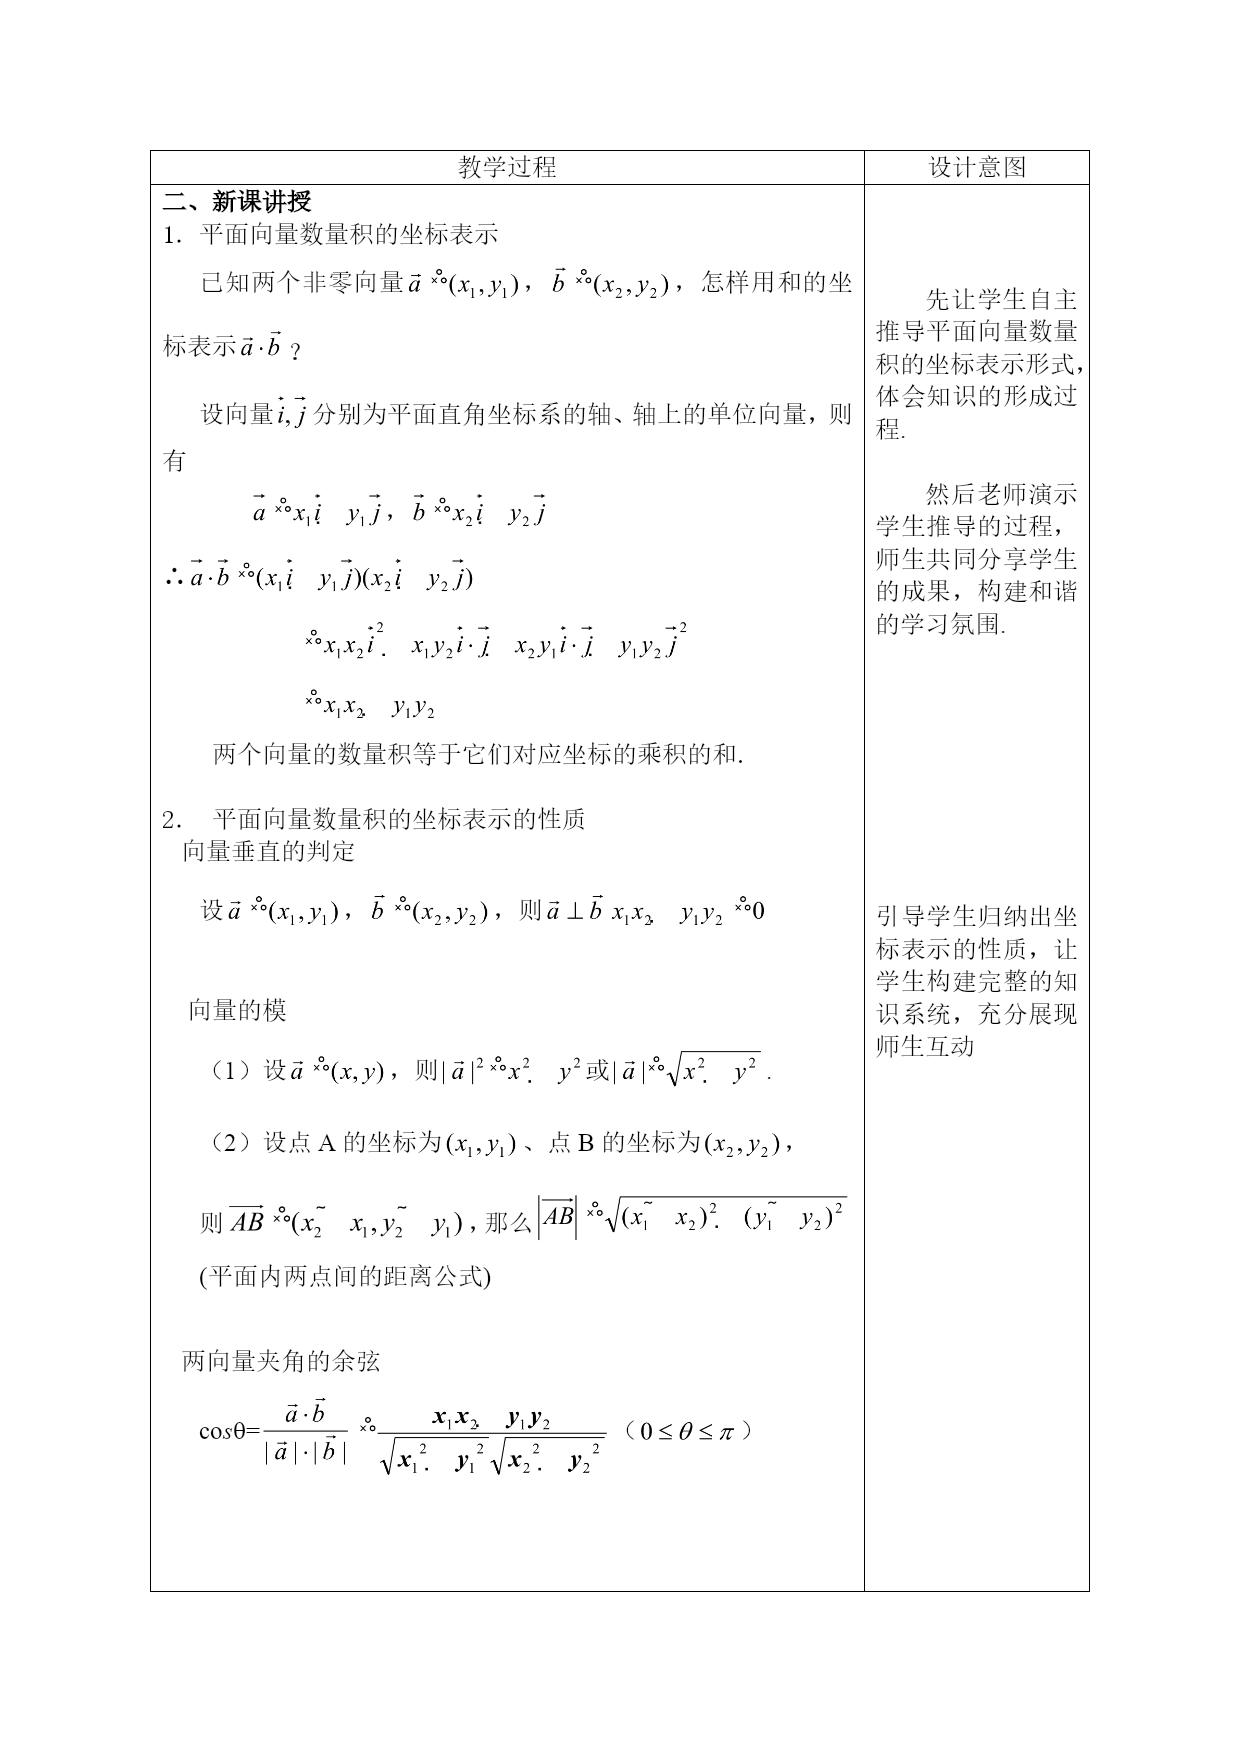 教学过程
设计意图
二、新课讲授
1．平面向量数量积的坐标表示
已知两个非零向量a⃗ (x₁,y₁)，b⃗ (x₂,y₂)，怎样用和的坐
标表示a⃗·b⃗？
设向量i⃗,j⃗分别为平面直角坐标系的轴、轴上的单位向量，则
有
a⃗ x₁i⃗ y₁j⃗，b⃗ x₂i⃗ y₂j⃗
∴a⃗·b⃗ (x₁i⃗ y₁j⃗)(x₂i⃗ y₂j⃗)
x₁x₂i⃗² x₁y₂i⃗·j⃗ x₂y₁i⃗·j⃗ y₁y₂j⃗²
x₁x₂ y₁y₂
两个向量的数量积等于它们对应坐标的乘积的和.
2． 平面向量数量积的坐标表示的性质
向量垂直的判定
设a⃗ (x₁,y₁)，b⃗ (x₂,y₂)，则a⃗⊥b⃗ x₁x₂ y₁y₂ 0
向量的模
（1）设a⃗ (x,y)，则|a⃗|² x² y²或|a⃗| √(x² y²) .
（2）设点 A 的坐标为(x₁,y₁)、点 B 的坐标为(x₂,y₂)，
则AB⃗ (x₂~ x₁,y₂~ y₁)，那么|AB⃗| √((x₁~ x₂)² (y₁~ y₂)²)
(平面内两点间的距离公式)
两向量夹角的余弦
cosθ= a⃗·b⃗ / |a⃗|·|b⃗| x₁x₂ y₁y₂ / √(x₁² y₁²)√(x₂² y₂²)（0≤θ≤π）
先让学生自主
推导平面向量数量
积的坐标表示形式，
体会知识的形成过
程.
然后老师演示
学生推导的过程，
师生共同分享学生
的成果，构建和谐
的学习氛围.
引导学生归纳出坐
标表示的性质，让
学生构建完整的知
识系统，充分展现
师生互动